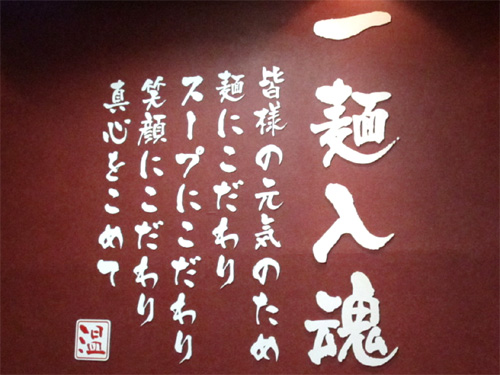 一麺入魂
皆様の元気のため
麺にこだわり
スープにこだわり
笑顔にこだわり
真心をこめて
温